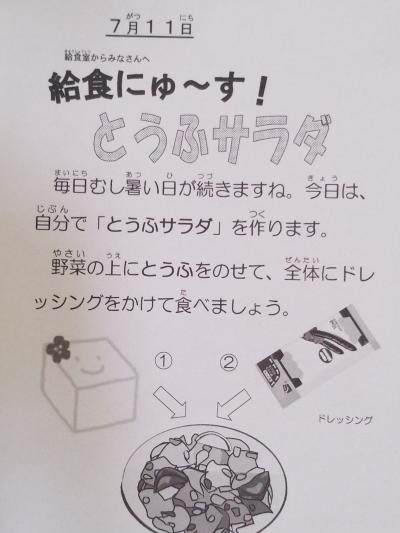 7月11日
給食室からみなさんへ
給食にゅ～す！
とうふサラダ
毎日むし暑い日が続きますね。今日は、
自分で「とうふサラダ」を作ります。
野菜の上にとうふをのせて、全体にドレ
ッシングをかけて食べましょう。
① ②
ドレッシング